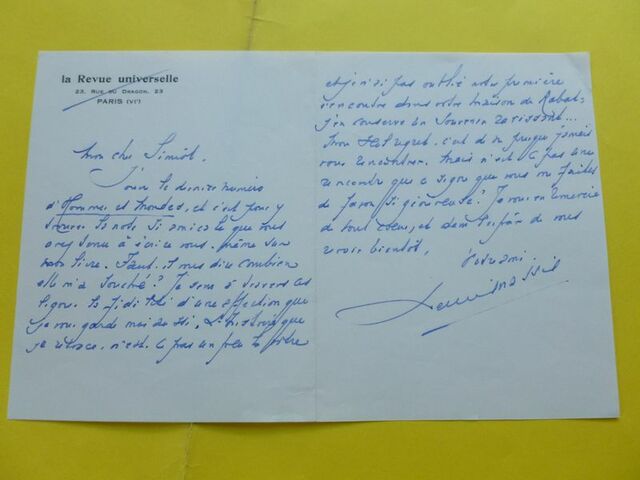 la Revue universelle
23, RUE DU DRAGON, 23
PARIS (VIᵉ)
Mon cher Simiot,
J'ouvre le dernier numéro
d'Hommes et Mondes, et c'est pour y
trouver la note si amicale que vous
avez tenu à écrire vous-même sur
mon livre. Faut-il vous dire combien
elle m'a touché ? Je sens à travers ces
lignes la fidélité d'une affection que
je vous garde moi aussi, et l'histoire que
je retrace, n'est-ce pas un peu la nôtre
et je n'ai pas oublié notre première
rencontre dans votre maison de Rabat.
J'en conserve un souvenir ravissant...
Mon seul regret, c'est de ne presque jamais
vous rencontrer. Mais n'est-ce pas une
rencontre que ce signe que vous me faites
de façon si généreuse ? Je vous en remercie
de tout cœur, et dans l'espoir de vous
revoir bientôt,
Votre ami